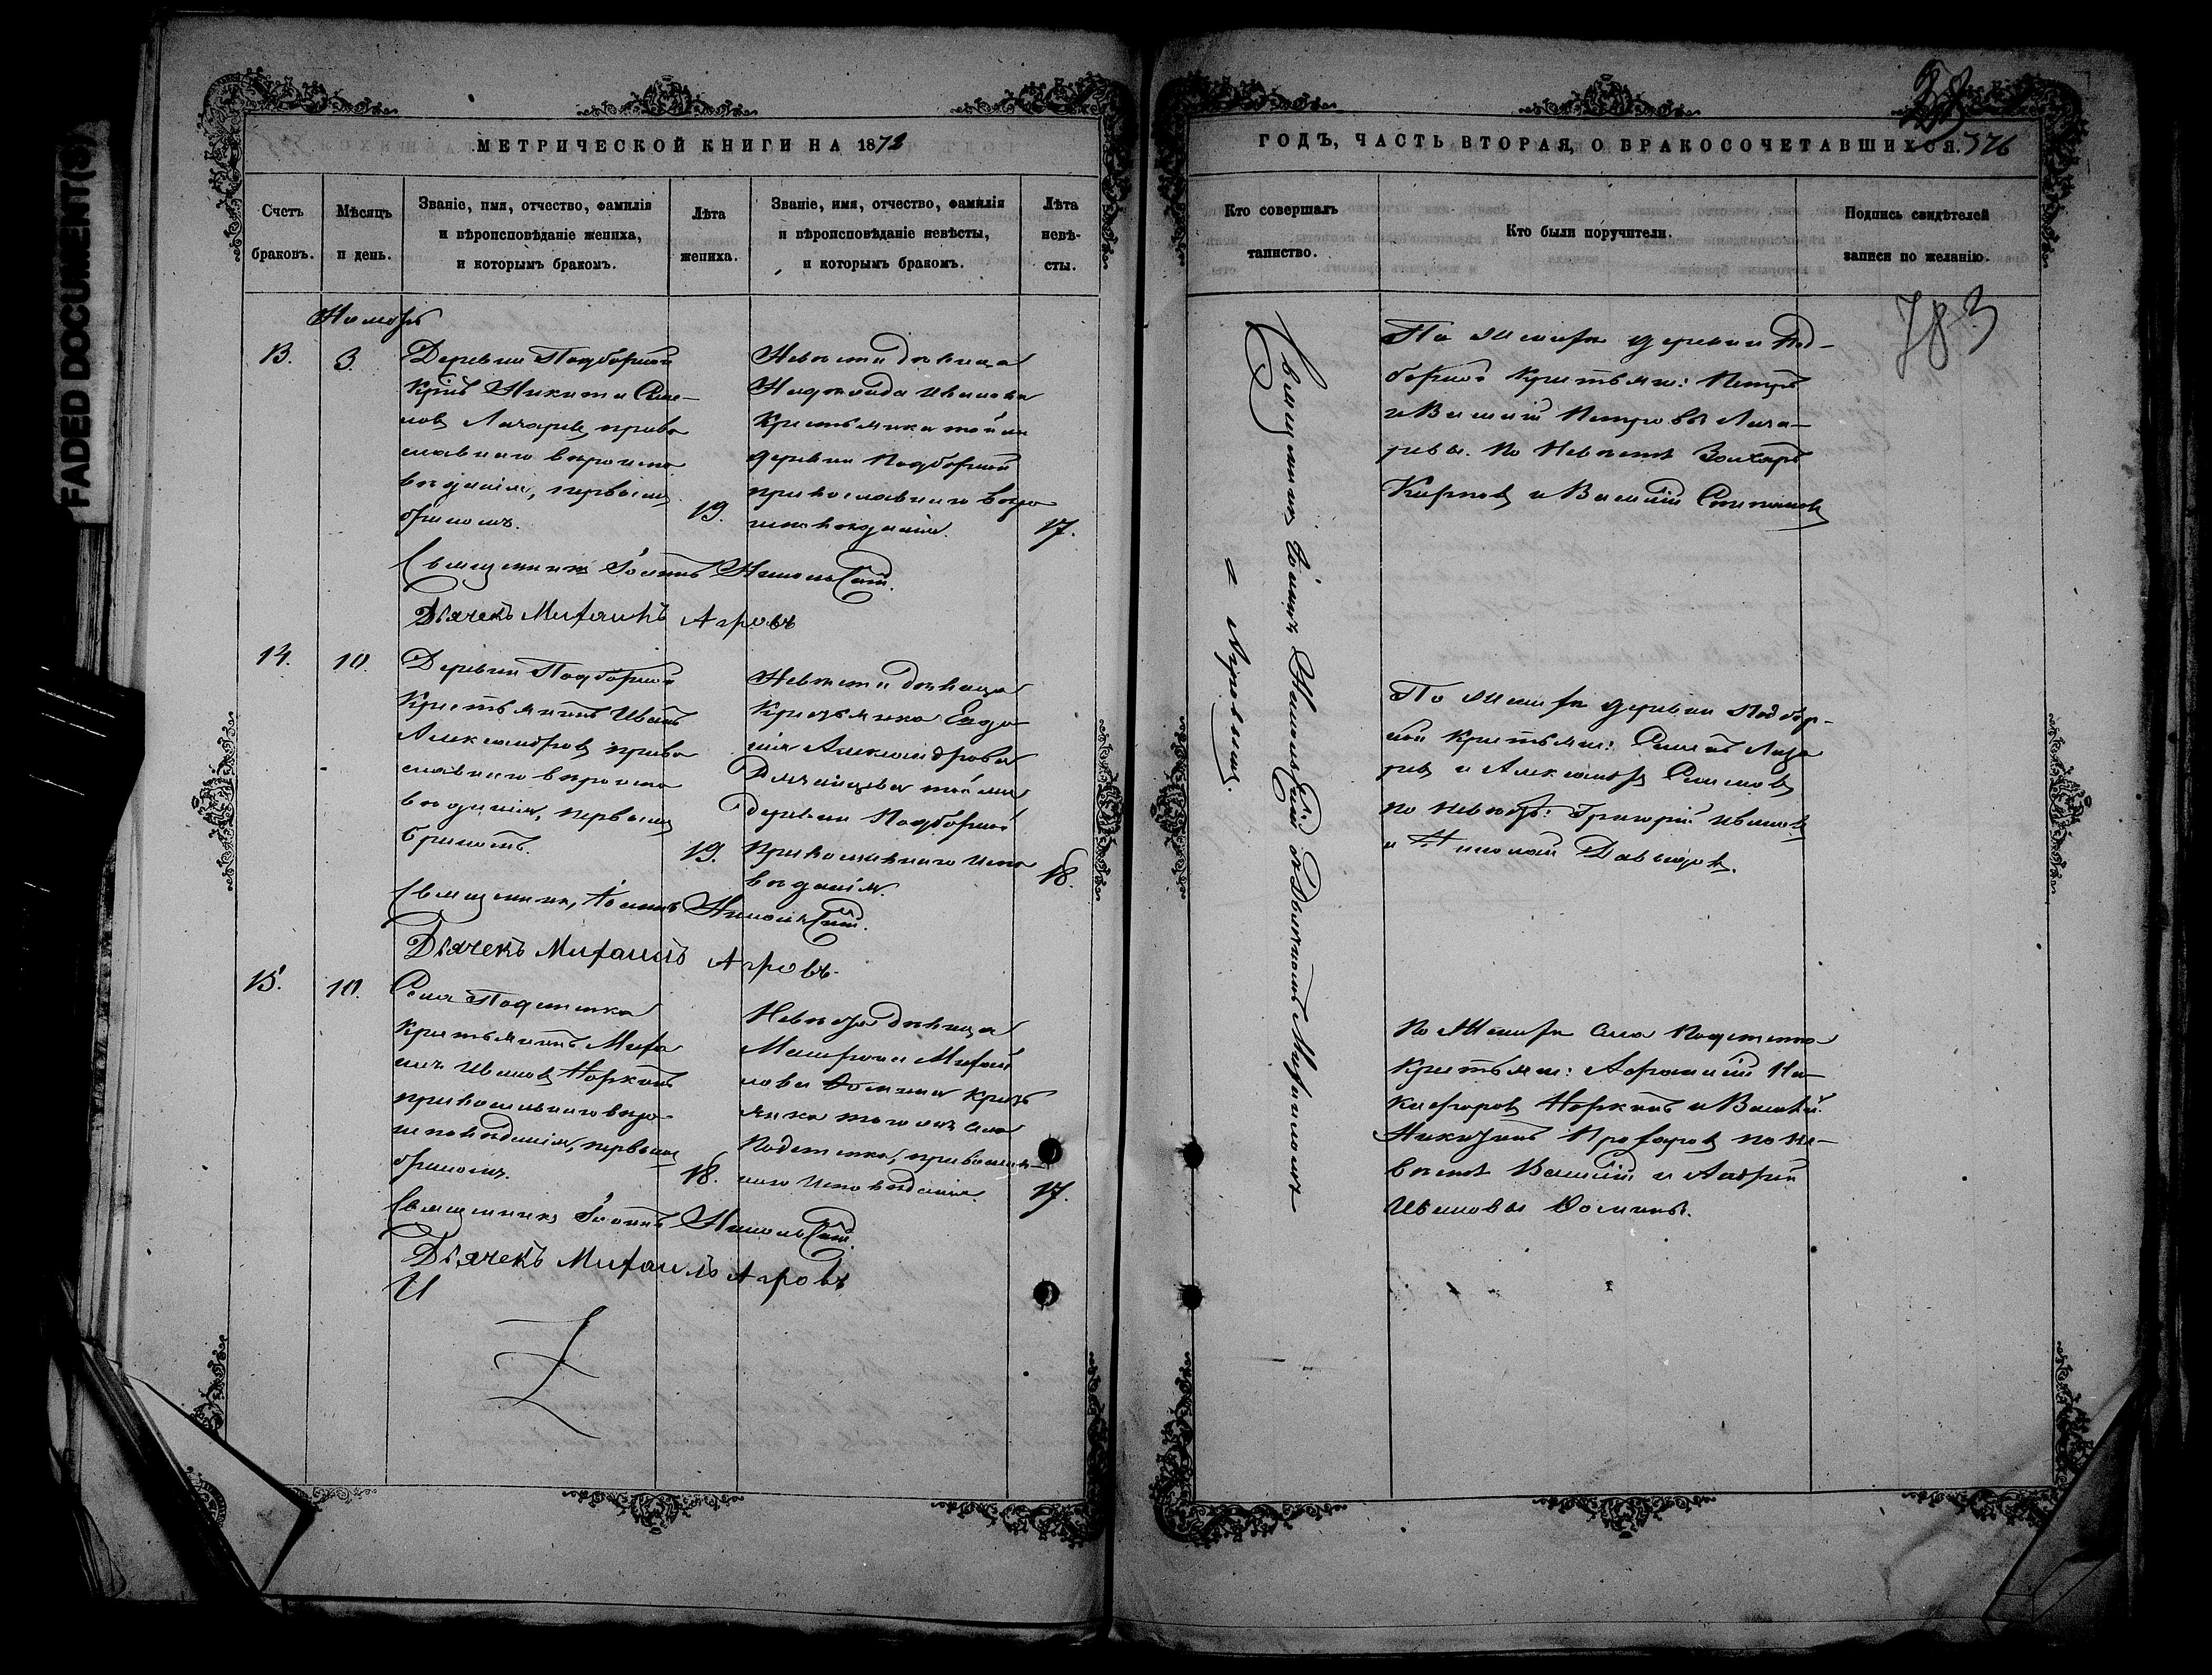 FADED DOCUMENT(S)
МЕТРИЧЕСКОЙ КНИГИ НА 1873
Счетъ браковъ.
Мѣсяцъ и день.
Званіе, имя, отчество, фамилія
и вѣроисповѣданіе жениха,
и которымъ бракомъ.
Лѣта
жениха.
Званіе, имя, отчество, фамилія
и вѣроисповѣданіе невѣсты,
и которымъ бракомъ.
Лѣта
невѣ-
сты.
13.
3.
Деревни Подборной
Никита Семе-
новъ Лазаревъ право
славнаго вѣроиспо
вѣданія, первымъ
бракомъ.
19.
Невѣста дѣвица
Надежда Иванова
Крестьянка той же
деревни Подборной
православнаго вѣро
исповѣданія.
17.
Священникъ Іоаннъ Никольскій.
Дьячекъ Михаилъ Агровъ
14.
10.
Деревни Подборной
Крестьянинъ Иванъ
Александровъ право
славнаго вѣроиспо
вѣданія, первымъ
бракомъ.
19.
Невѣста дѣвица
Крестьянка Евдо
кія Александрова
той же
деревни Подборной
Православнаго испо
вѣданія.
18.
Священникъ Іоаннъ Никольскій.
Дьячекъ Михаилъ Агровъ
15.
10.
Села
Крестьянинъ Миха
илъ Ивановъ Норкинъ
православнаго вѣро
исповѣданія, первымъ
бракомъ.
18.
Невѣста дѣвица
Михай
лова Фомина Кресть
янка того же села
православ-
наго исповѣданія.
17.
Священникъ Іоаннъ Никольскій.
Дьячекъ Михаилъ Агровъ
И
ГОДЪ, ЧАСТЬ ВТОРАЯ, О БРАКОСОЧЕТАВШИХСЯ. 326
Кто совершалъ
таинство.
Кто были поручители.
Подпись свидѣтелей
записи по желанію.
783
Священникъ Іоаннъ Никольскій съ Дьячкомъ Михаиломъ
Агровымъ.
По женихѣ деревни Под-
борной Крестьяне: Петръ
и Василій Петровы Лаза-
ревы. По невѣстѣ Захаръ
Карповъ и Василій Степановъ
По женихѣ деревни Подбор-
ной Крестьяне: Семенъ Лаза
ревъ и Александръ Семеновъ
по невѣстѣ: Григорій Ивановъ
и Николай Давыдовъ.
По женихѣ села
Крестьяне: Афанасій Ни-
кифоровъ Норкинъ и Василій
Никитинъ Прохоровъ по не-
вѣстѣ Василій и Андрей
Ивановы Фомины.